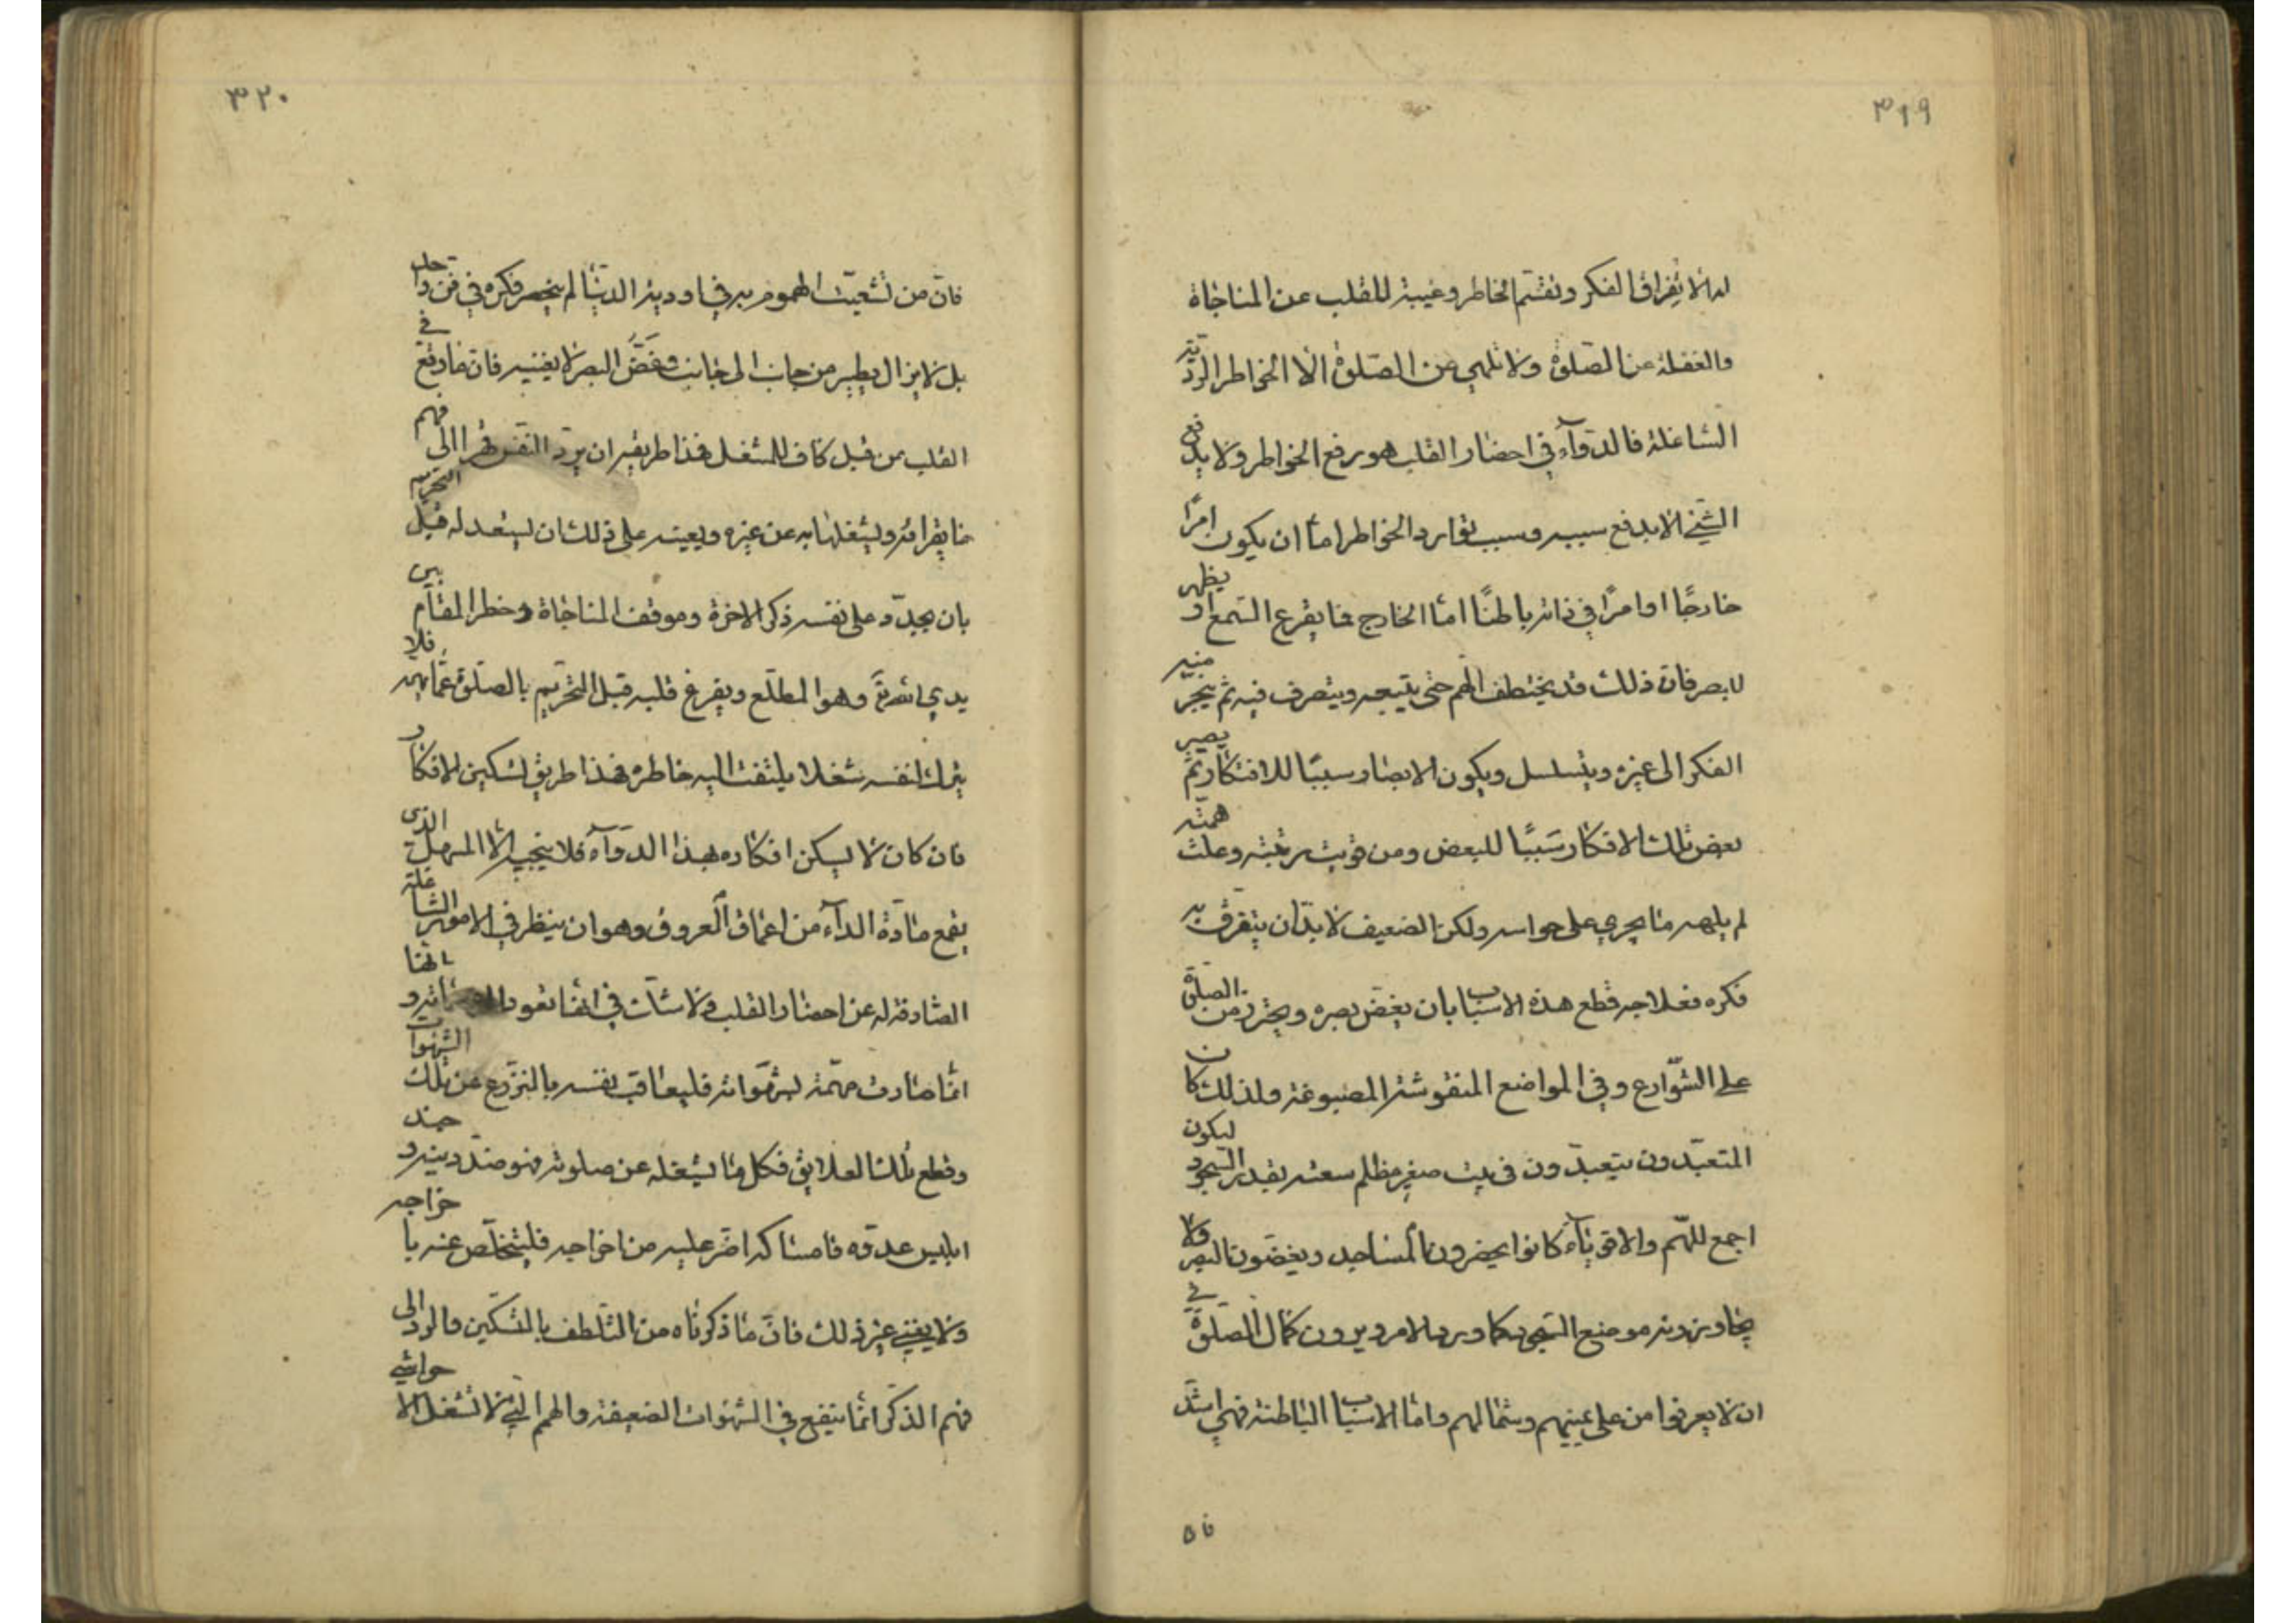 ٣١٩
له الا تفراق الفكر وتقسّم الخاطر وغيبة للقلب عن المناجاة
والغفلة عن الصلوة ولا تلهي عن الصلوة الا الخواطر الرديّة
الشاغلة فالدوآء في احضار القلب هو رفع الخواطر ولا يدفع
الشيئ الا بدفع سببه وسبب توارد الخواطر امّا ان يكون امرًا
خارجًا او امرًا في ذاته باطنًا امّا الخارج فما يقرع السّمع او يظهر
لابصر فان ذلك قد يختطف الهم حتى يتبعه ويتصرف فيه ثم ينجر منه
الفكر الى غيره ويتسلسل ويكون الابصار سببًا للافتكار ثم يصير
بعض تلك الافكار سَببًا للبعض ومن قويت رغبته وعلت همّته
لم يلهه ما يجري على حواسه ولكن الضعيف لا بدّ ان يتفرق به
فكره فعلاجه قطع هذه الاسباب بان يغضّ بصره ويحترز من الصلوة
على الشّوارع وفي المواضع المنقوشة المصبوغة ولذلك كان
المتعبّدون يتعبدّون في بيت صغير مظلم سعته بقدر السجود ليكون
اجمع للهّم والاقويآء كانوا يحضرون المساجد ويغضّون البصر ولا
يجاوزونه موضع السّجود كما ورد الامر ويرون كمال الصّلوة في
ان لا يعرفوا من على يمينهم وشمالهم وامّا الاسباب الباطنة فهي اشدّ
فا ٥
٣٢٠
فانّ من تشعّبت الهموم به في اودية الدنيا لم ينحصر فكره في فن واحد
بل لا يزال يطير من جانب الى جانب وغضُّ البصر لا يغنيه فان ما وقع في
القلب من قبل كاف للشغل فهذا طريقه ان يردّ النفس قهرا الى فهم
ما يقراه ويشغلها به عن غيره ويعينه على ذلك ان يستعد له قبل التحريم
بان يجدّد على نفسه ذكر الاخرة وموقف المناجاة وخطر المقام بين
يدي الله وهو المطّلع ويفرغ قلبه قبل التحريم بالصلوة عمّا يهمه فلا
يترك لنفسه شغلا يلتفت اليه خاطره فهذا طريق تسكين الافكار
فان كان لا يسكن افكاره بهذا الدوآء فلا ينجيه الا المسهل الذى
يقمع مادّة الدآء من اعماق العروق وهو ان ينظر في الامور الشاغلة
الصّادفة له عن احضار القلب ولا شك في انها تعود الى مهمّاته و انها
انّما صارت مهمّة لشهواته فليعاقب نفسه بالنزوع عن تلك الشهوات
وقطع تلك العلايق فكل ما يشغله عن صلوته فهو ضدّ دينه و جند
ابليس عدوّه فامساكه اضرّ عليه من اخراجه فليتخلّص عنه با خراجه
ولا يغني غير ذلك فانّ ما ذكرناه من التّلطف بالتّسكين والرد الى
فهم الذكر انّما ينفع في الشهوات الضعيفة والهم التي لا تشغل الا حواشي